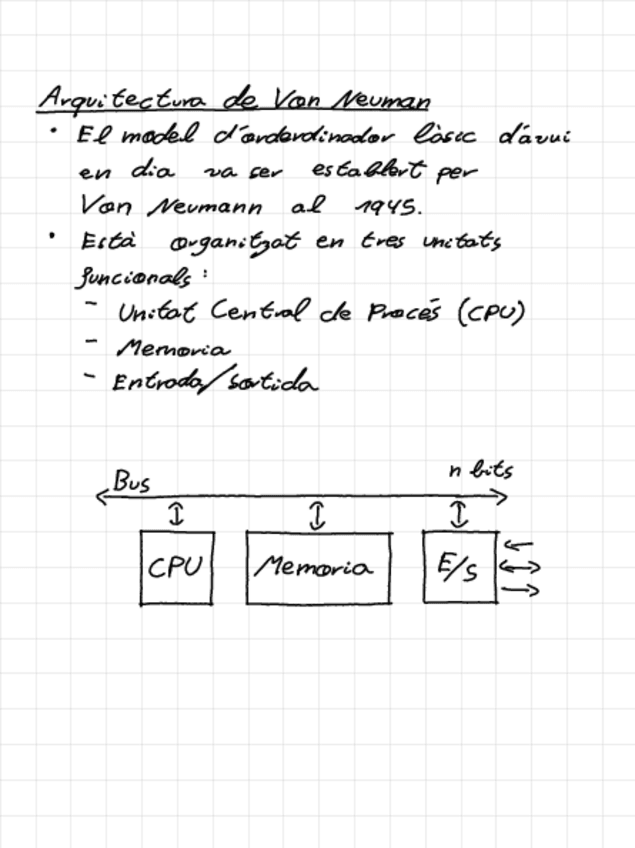 Arquitectura de Von Neuman
• El model d'ordardinador bàsic d'avui
en dia va ser establert per
Von Neumann al 1945.
• Està organitzat en tres unitats
funcionals:
- Unitat Central de Procés (CPU)
- Memoria
- Entrada/sortida
Bus n bits
CPU Memoria E/S